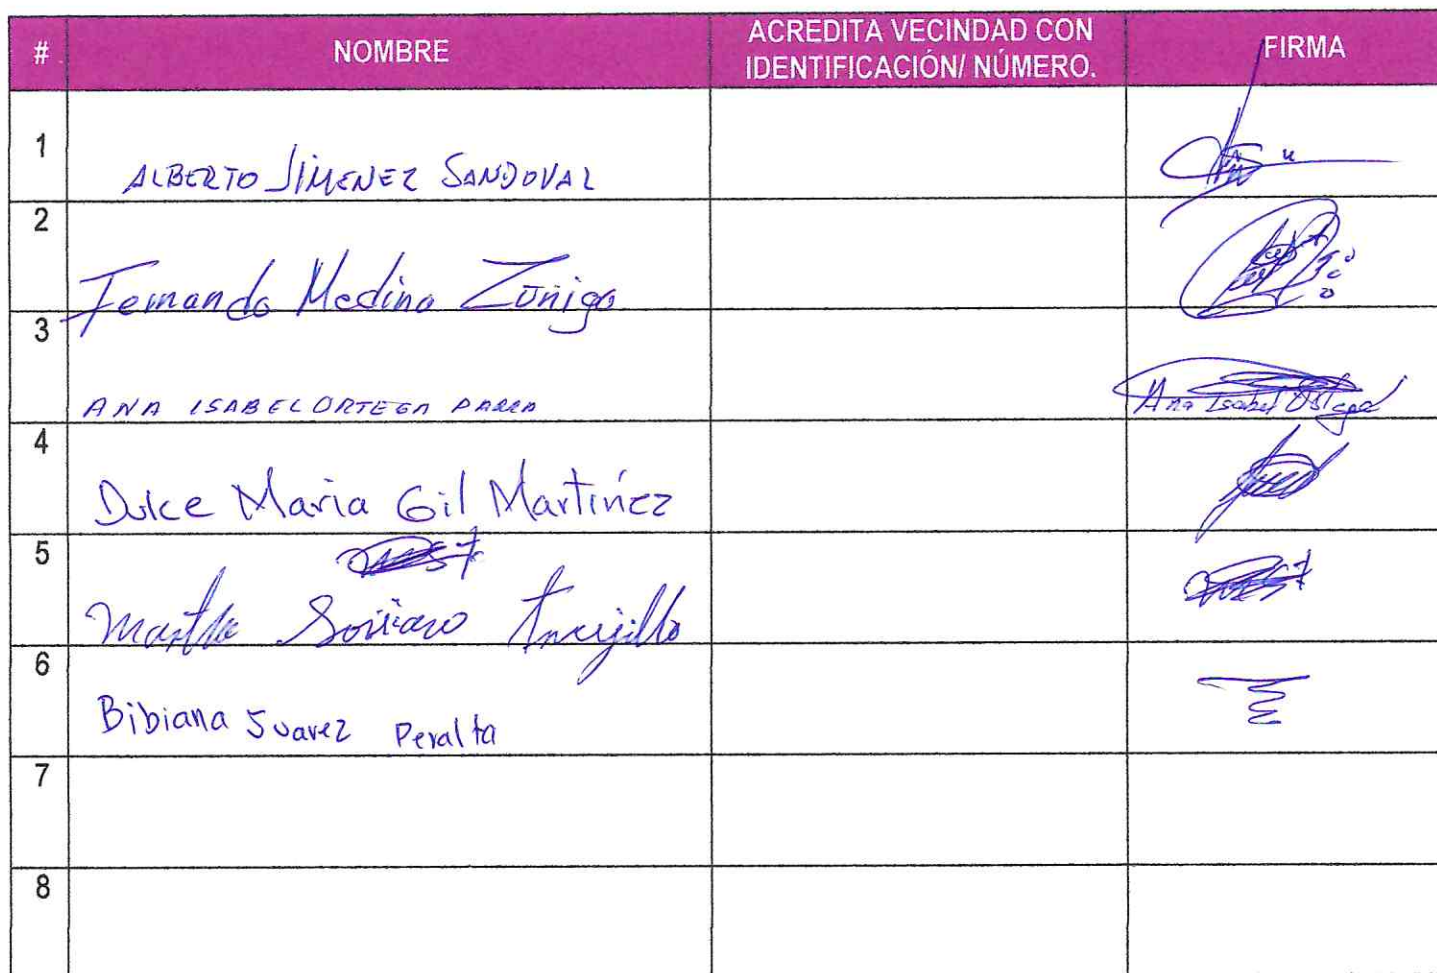 # NOMBRE ACREDITA VECINDAD CON IDENTIFICACIÓN/ NÚMERO. FIRMA
1 ALBERTO JIMENEZ SANDOVAL
2 Fernando Medina Zúñiga
3 ANA ISABEL ORTEGA PARRA Ana Isabel Ortega
4 Dulce Maria Gil Martínez
5 Martha Soriano Trujillo
6 Bibiana Suarez Peralta
7
8